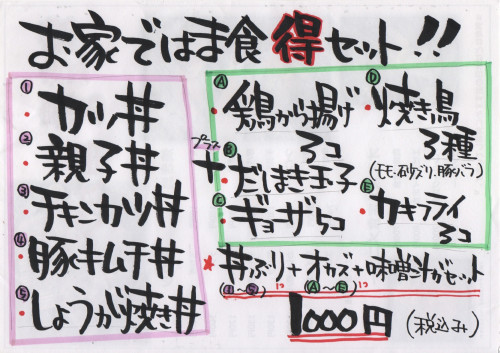 お家ではま食得セット!!
① カツ丼
② 親子丼
③ チキンカツ丼
④ 豚キムチ丼
⑤ しょうが焼き丼
プラス
+
Ⓐ 鶏から揚げ
3コ
Ⓑ だしまき玉子
Ⓒ ギョーザ5コ
Ⓓ 焼き鳥
3種
(モモ・砂ズリ・豚バラ)
Ⓔ カキフライ
3コ
★丼ぶり+オカズ+味噌汁がセット
(①〜⑤)1つ (Ⓐ〜Ⓔ)1つ
1000円(税込み)